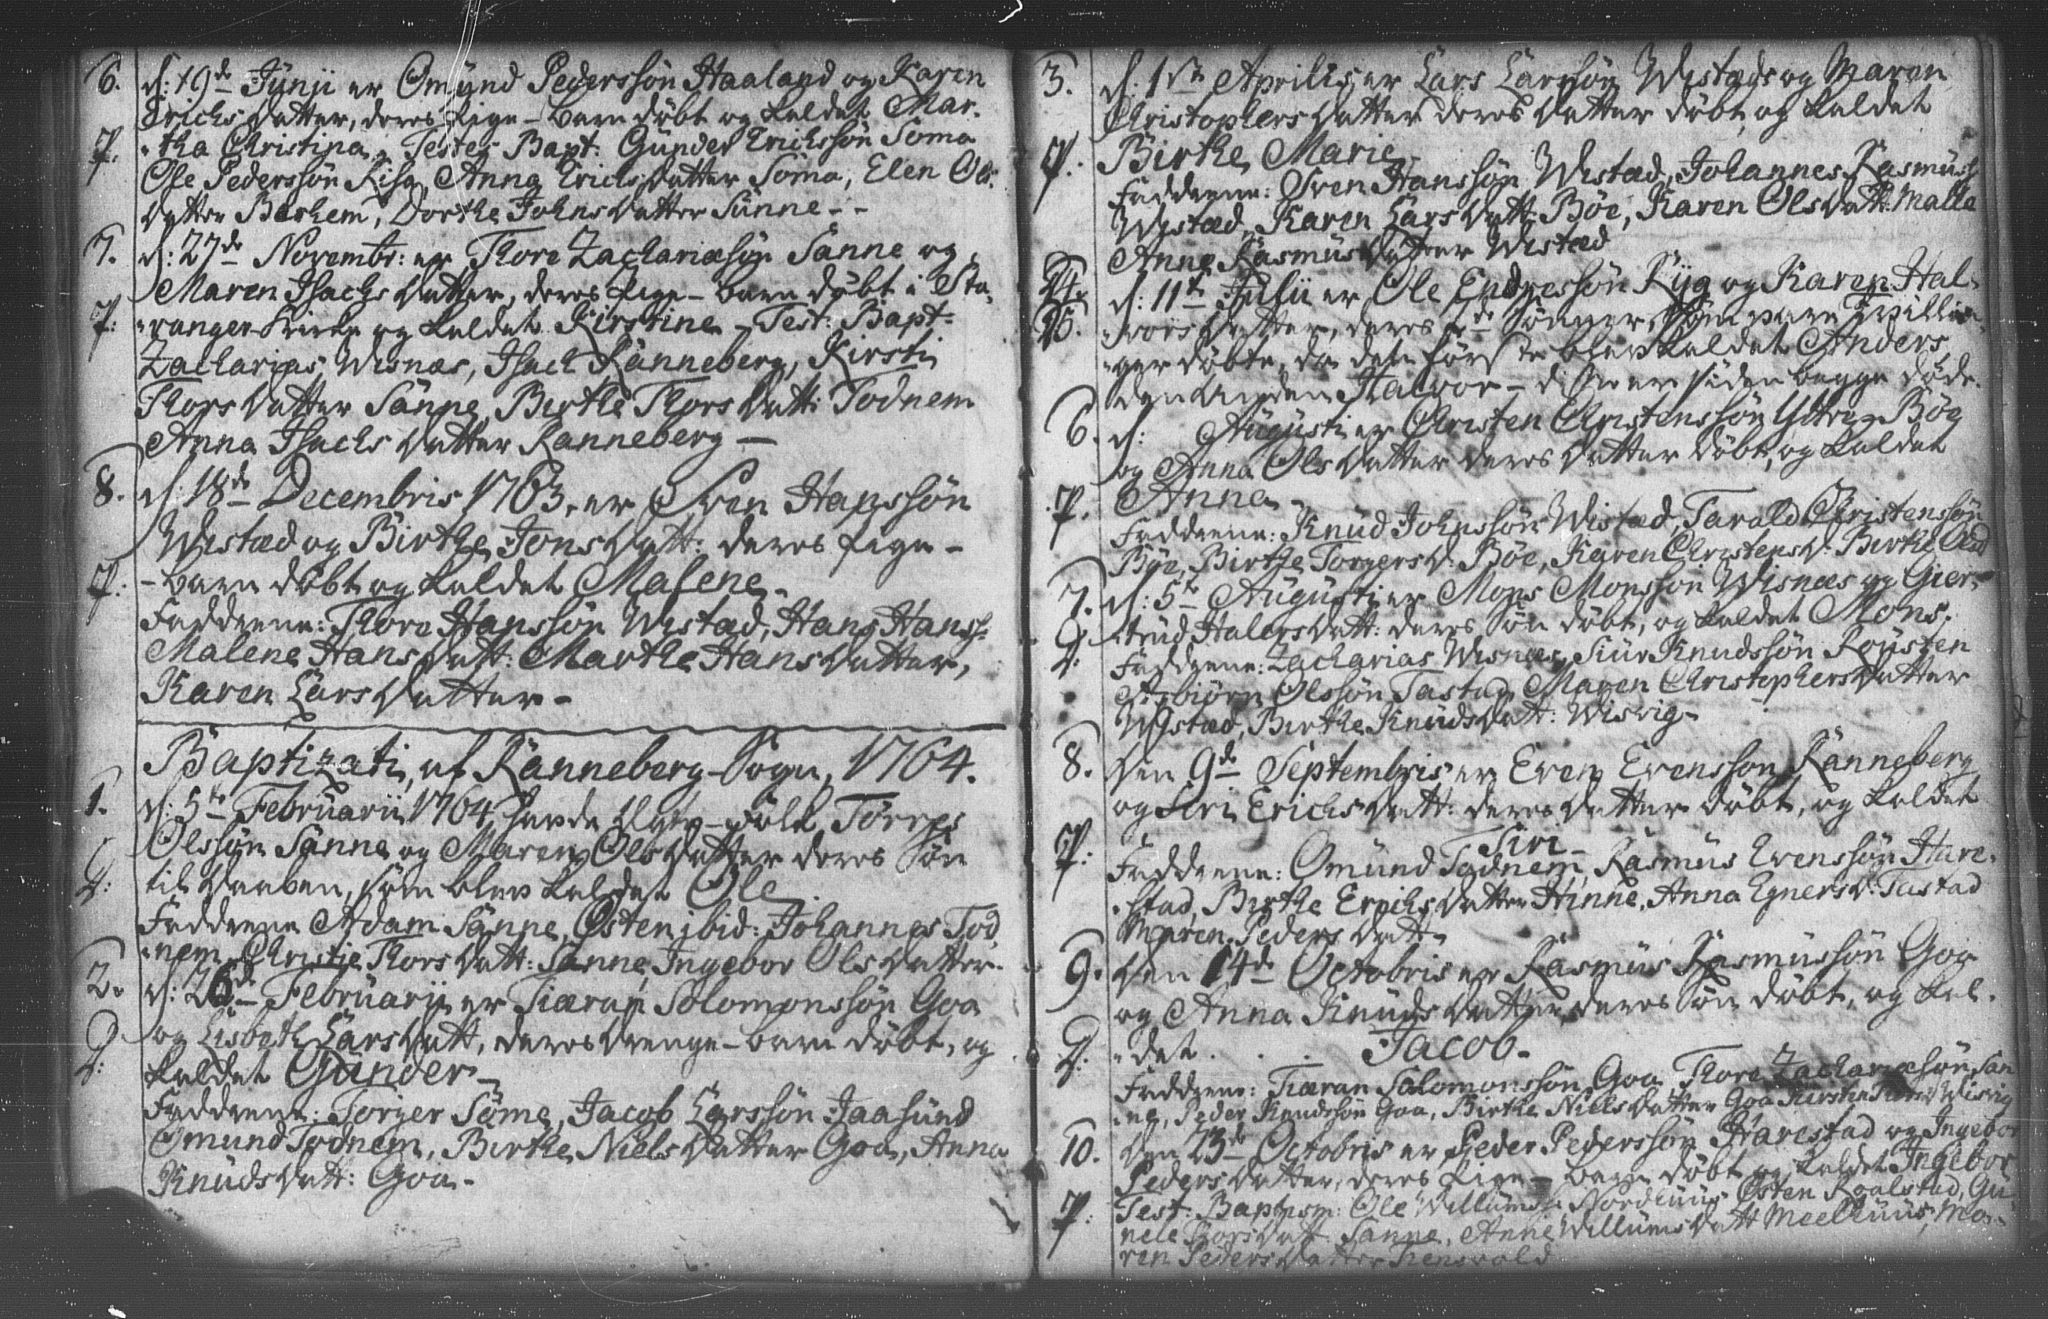 6. d: 19de Junii er Omund Pederssøn Haaland og Karen
Erichs Datter, deres Pige-barn døbt og kaldet Mar-
P. tha Christina. Testes Bapt: Gunder Erichssøn Soma
Ole Pederssøn Risa, Anna Erichs Datter Soma, Elen Ols
Datter Berhem, Dorthe Johns Datter Sunne - -
7. d: 27de Novembr: er Thore Zachariæsøn Sanne og
Maren Isachs Datter, deres Pige-barn døbt i Sta-
P: vanger Kirke og kaldet Kirstine - Test: Bapt:
Zacharias Wisnæs, Isach Ranneberg, Kirsti
Thors Datter Sanne, Birthe Thors Datt: Todnem
Anna Isachs Datter Ranneberg -
8. d: 18de Decembris 1763, er Sven Hanssøn
Wistæd og Birthe Jons Datt: deres Pige-
P: -barn døbt og kaldet Malene.
Fadderne: Thore Hanssøn Wistæd, Hans Hanss:
Malene Hans Datt: Marthe Hans Datter,
Karen Lars Datter -
Baptizati, af Ranneberg Sogn, 1764.
1. d: 5te Februarii 1764, havde Unge-folk Tørres
Olssøn Sanne og Maren Ols Datter deres Søn
D: til Daaben, som blev kaldet Ole
Fadderne Adam Sanne, Østen ibid: Johannes Tod,
nem, Christie Thors Datt: Sanne, Ingebor Ols Datter.
2. d: 26de Februarii er Tiæran Solomonssøn Goa
og Lisbeth Lars Datt, deres Drenge-barn døbt, og
D: kaldet Gunder -
Fadderne: Torger Søme, Jacob Larssøn Jaasund
Omund Todnem, Birthe Niels Datter Goa, Anna
Knuds Datt: Goa.
3. d: 1ste Aprilis er Lars Larssøn Wistæd og Maren
Christophers Datter deres Datter døbt, og kaldet
P. Birthe Marie
Fadderne: Sven Hanssøn Wistæd, Johannes Rasmuss:
Wistæd, Karen Lars Datt: Bøe, Karen Ols Datt: Malle
Anne Rasmus Datter Wistæd
4. d: 11te Julii er Ole Endressøn Ryg og Karen Hal-
5. vors Datter, deres Sønner som vare Tvillin-
ger døbte, da den første blev kaldet Anders
den anden Halvor - disse ere siden begge døde.
6. d: Augusti er Christen Christenssøn Ytre-Bøe
og Anna Ols Datter deres Datter døbt, og kaldet
P. Anna
Fadderne: Knud Johnssøn Wistæd, Tarald Christenssøn
Bøe, Birthe Torgers D: Bøe, Karen Christens D: Birthe Ols D
7. d: 5te Augusti er Mons Monssøn Wisnæs og Gier-
D: trud Halvers Datt: deres Søn døbt, og kaldet Mons.
Fadderne: Zacharias Wisnæs, Siur Knudssøn Røysten
Asbiørn Olssøn Tastad, Maren Christophers Datter
Wistæd, Birthe Knuds Datt: Wisvig
8. Den 9de Septembris er Even Evenssøn Ranneberg
og Siri Erichs Datt: deres Datter døbt, og kaldet
Siri -
P: Fadderne: Omund Todnem, Rasmus Evenssøn Hare-
stad, Birthe Erichs Datter Hinne, Anna Egners D: Tastad
Maren Peders Datt
9. Den 14de Octobris er Rasmus Rasmussøn Goa
og Anna Knuds Datter, deres Søn døbt, og kal-
D: det . . Jacob -
Fadderne: Tiæran Solomonssøn Goa, Thore Zachariæsøn San
ne, Peder Knudssøn Goa, Birthe Niels Datter Goa Kirstin D Wisvig
10. Den 23de Octobris er Peder Pederssøn Harestad og Ingebor
Peders Datter, deres Pige-barn døbt og kaldet Ingebor
P: Test: Baptism: Ole Willums: Nordtuun Østen Roalstad, Gu
nele Thors Datt: Sanne, Anne Willums Datt Meeltuun, Ma-
ren Peders Datter Tiensvold